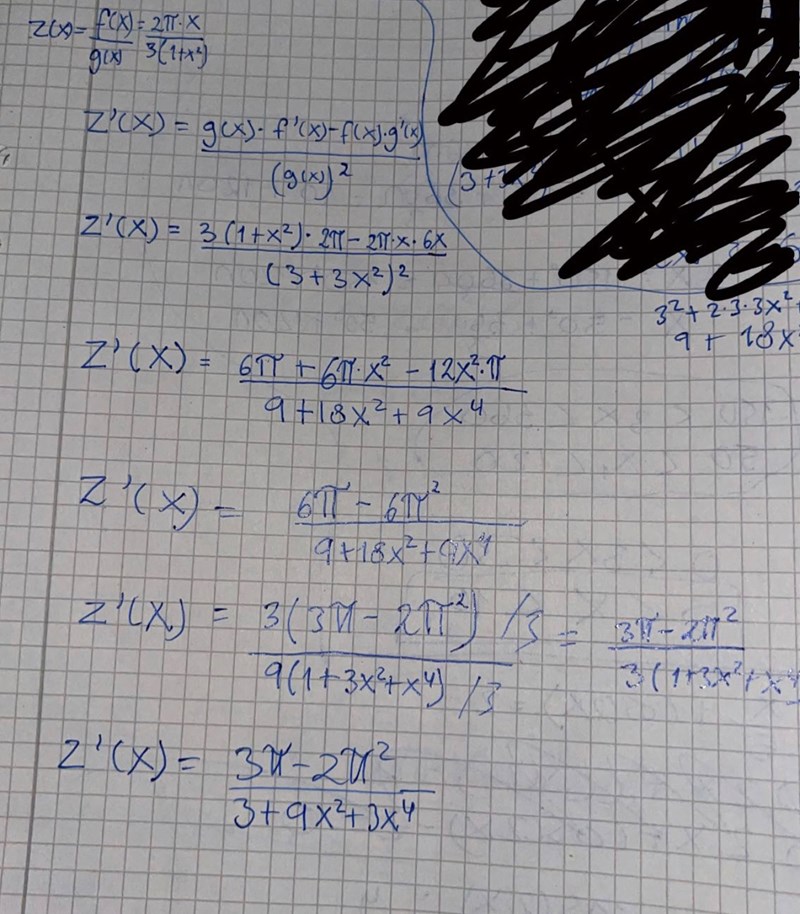 Z(x) = f(x)/g(x) = 2π·x/3(1+x²)
Z'(x) = g(x)· f'(x)-f(x)·g'(x)/(g(x))²
(3+3x²)
Z'(x) = 3(1+x²)· 2π-2π·x·6x/(3+3x²)²
3²+2·3·3x²+
9+18x²
Z'(x) = 6π+6π·x²-12x²·π/9+18x²+9x⁴
Z'(x) = 6π-6π²/9+18x²+9x⁴
Z'(x) = 3(3π-2π²) /3/9(1+3x²+x⁴) /3 = 3π-2π²/3(1+3x²+x⁴
Z'(x) = 3π-2π²/3+9x²+3x⁴